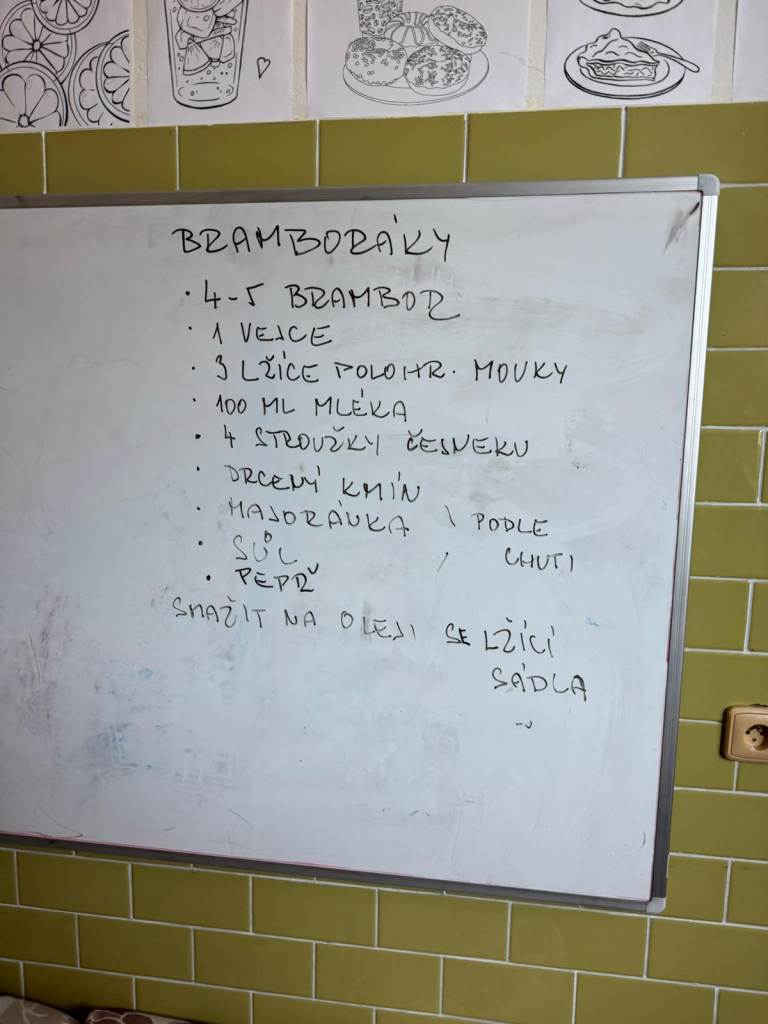 BRAMBORÁKY
· 4-5 BRAMBOR
· 1 VEJCE
· 3 LŽÍCE POLOHR. MOUKY
· 100 ML MLÉKA
· 4 STROUŽKY ČESNEKU
· DRCENÝ KMÍN
· MAJORÁNKA \ PODLE
· SŮL / CHUTI
· PEPŘ
SMAŽIT NA OLEJI SE LŽÍCÍ
SÁDLA